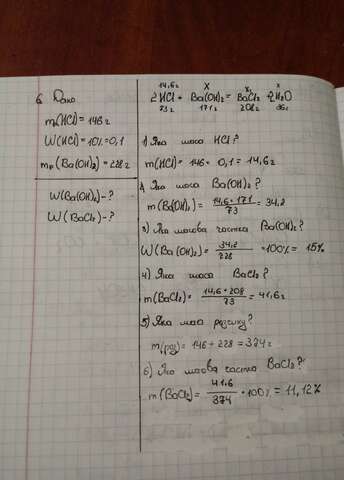 6. Дано
m(HCl) = 146г
W(HCl) = 10% = 0,1
mр(Ba(OH)₂) = 228г
W(Ba(OH)₂) - ?
W(BaCl₂) - ?
14,6г X X₁
2HCl + Ba(OH)₂ = BaCl₂ + 2H₂O
73г 171г 208г 36г
1) Яка маса HCl?
m(HCl) = 146 · 0,1 = 14,6г
2) Яка маса Ba(OH)₂?
m(Ba(OH)₂) = 14,6 · 171 / 73 = 34,2
3) Яка масова частка Ba(OH)₂?
W(Ba(OH)₂) = 34,2 / 228 · 100% = 15%
4) Яка маса BaCl₂?
m(BaCl₂) = 14,6 · 208 / 73 = 41,6г
5) Яка маса розчину?
m(роз) = 146 + 228 = 374г
6) Яка масова частка BaCl₂?
m(BaCl₂) = 41.6 / 374 · 100% = 11,12%